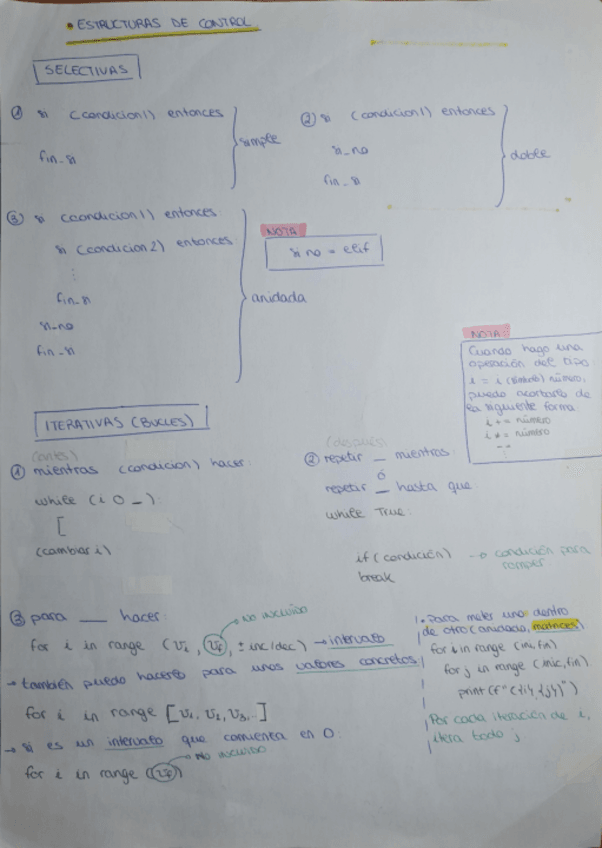 • ESTRUCTURAS DE CONTROL
SELECTIVAS
① si (condicion1) entonces
fin_si
simple
② si (condicion1) entonces
si_no
fin_si
doble
③ si (condicion1) entonces
si (condicion2) entonces
⋮
fin_si
si_no
fin_si
anidada
NOTA
si no = elif
NOTA:
Cuando hago una
operación del tipo:
i = i (símbolo) número,
puedo acortarlo de
la siguiente forma
i += número
i *= número
ITERATIVAS (BUCLES)
(antes)
① mientras (condicion) hacer:
while (i O _):
[
(cambiar i)
(después)
② repetir _ mientras
ó
repetir _ hasta que
while True:
if (condición) → condición para
romper
break
③ para __ hacer:
no incluido
for i in range (Vi, Vf, ± inc/dec) → intervalo
→ también puedo hacerlo para unos valores concretos:
for i in range [V1, V2, V3, ..]
→ si es un intervalo que comienza en 0:
no incluido
for i in range (Vf)
• Para meter uno dentro
de otro (anidado, matrices)
for i in range (ini, fin)
for j in range (inic, fin)
print (f"{i}, {j}")
Por cada iteración de i,
itera todo j.